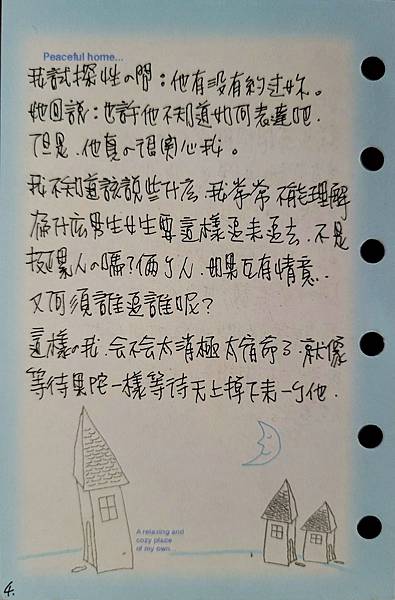 Peaceful home...
我試探性の問：他有沒有約过妳。
她回說：也許他不知道如何表達吧.
但是.他真の很關心我。
我不知道該說些什么.我常常不能理解
為什么男生女生要這樣追來追去.不是
挺累人の嗎？俩个人.如果互有情意..
又何須誰追誰呢？
這樣の我.会不会太消極太宿命了.就像
等待果陀一樣等待天上掉下來一个他.
A relaxing and
cozy place
of my own...
4.